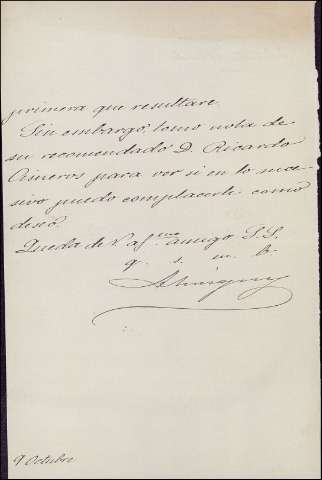 primera que resultare.
Sin embargo, tomo nota de
su recomendado D. Ricardo
Cisneros para ver si en lo suce-
sivo puedo complacerle como
deseo.
Queda de V af.mo amigo S.S.
q. s. m. b.
9 Octubre